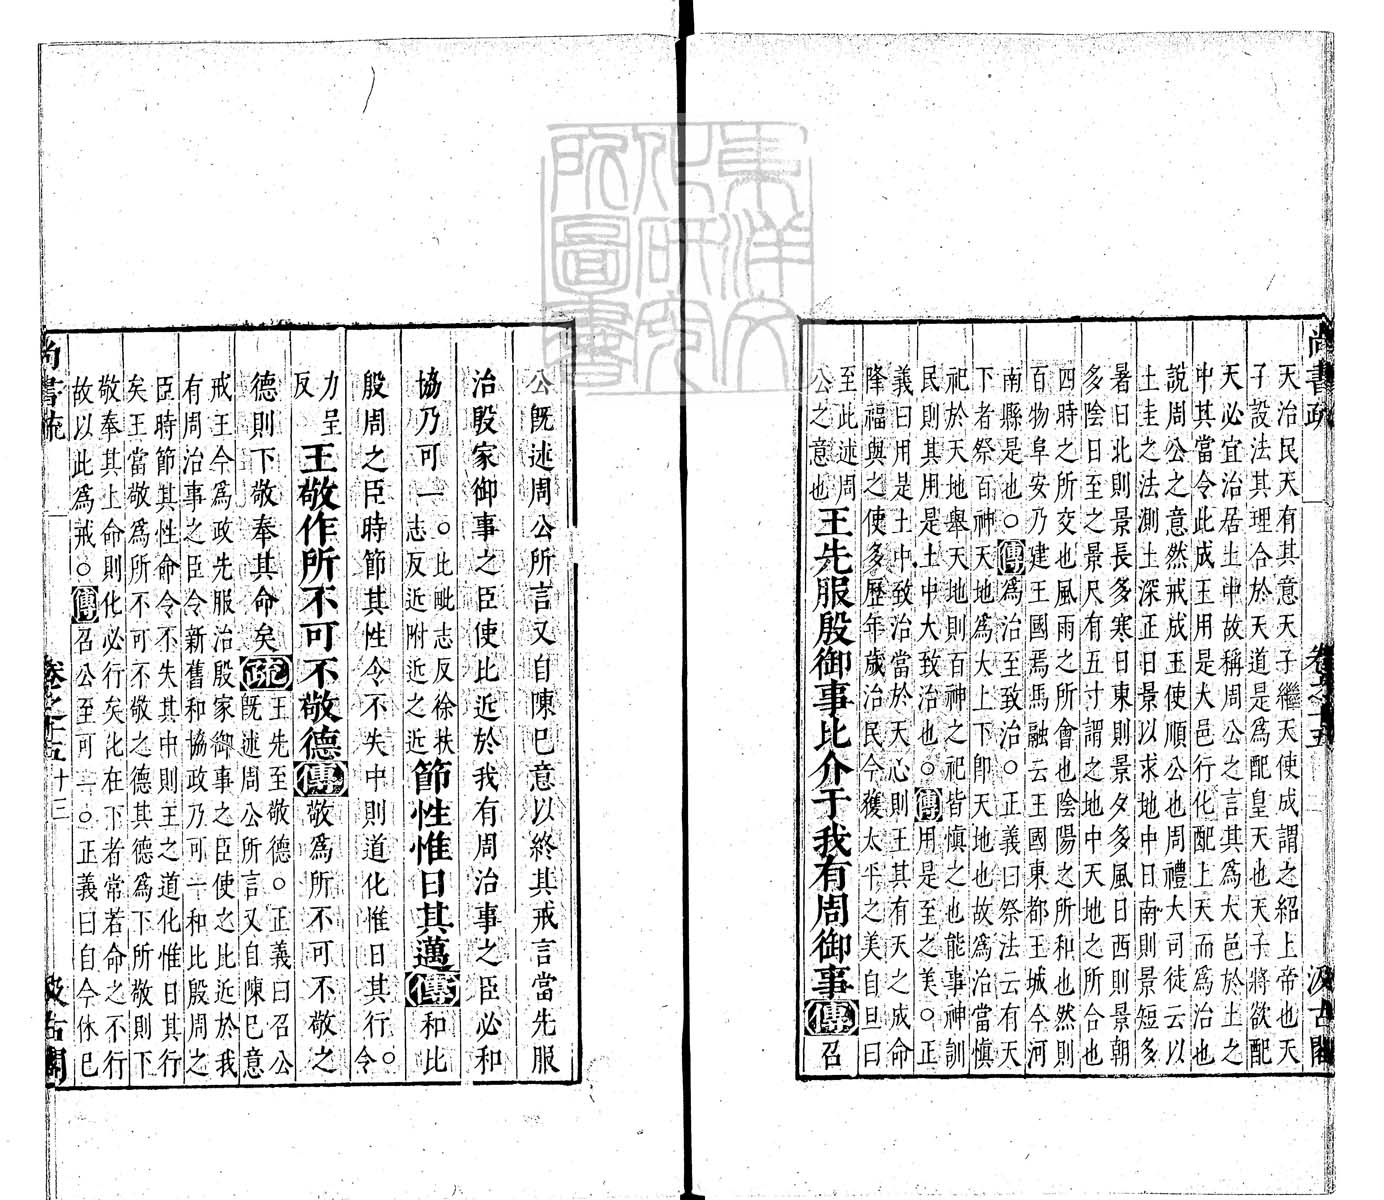 尚書疏 卷之十五 汲古閣
天治民天有其意天子繼天使成謂之紹上帝也天
子設法其理合於天道是爲配皇天也天子將欲配
天必宜治居土中故稱周公之言其爲大邑於土之
中其當令此成王用是大邑行化配上天而爲治也
說周公之意然戒成王使順公也周禮大司徒云以
土圭之法測土深正日景以求地中日南則景短多
暑日北則景長多寒日東則景夕多風日西則景朝
多陰日至之景尺有五寸謂之地中天地之所合也
四時之所交也風雨之所會也陰陽之所和也然則
百物阜安乃建王國焉馬融云王國東都王城今河
南縣是也○傳爲治至致治○正義曰祭法云有天
下者祭百神天地爲大上下卽天地也故爲治當慎
祀於天地舉天地則百神之祀皆慎之也能事神訓
民則其用是土中大致治也○傳用是至之美○正
義曰用是土中致治當於天心則王其有天之成命
降福與之使多歷年歲治民今獲太平之美自旦曰
至此述周
公之意也
王先服殷御事比介于我有周御事傳召
公旣述周公所言又自陳已意以終其戒言當先服
治殷家御事之臣使比近於我有周治事之臣必和
協乃可一○比毗志反徐扶志反近附近之近節性惟日其邁傳和比
殷周之臣時節其性令不失中則道化惟日其行○令
力呈反王敬作所不可不敬德傳敬爲所不可不敬之
德則下敬奉其命矣疏王先至敬德○正義曰召公
旣述周公所言又自陳已意
戒王今爲政先服治殷家御事之臣使之比近於我
有周治事之臣令新舊和協政乃可一和比殷周之
臣時節其性命令不失其中則王之道化惟日其行
矣王當敬爲所不可不敬之德其德爲下所敬則下
敬奉其上命則化必行矣化在下者常若命之不行
故以此爲戒○傳召公至可一○正義曰自今休已
尚書疏 卷之十五 十三 汲古閣
東洋文
化研究
所圖書